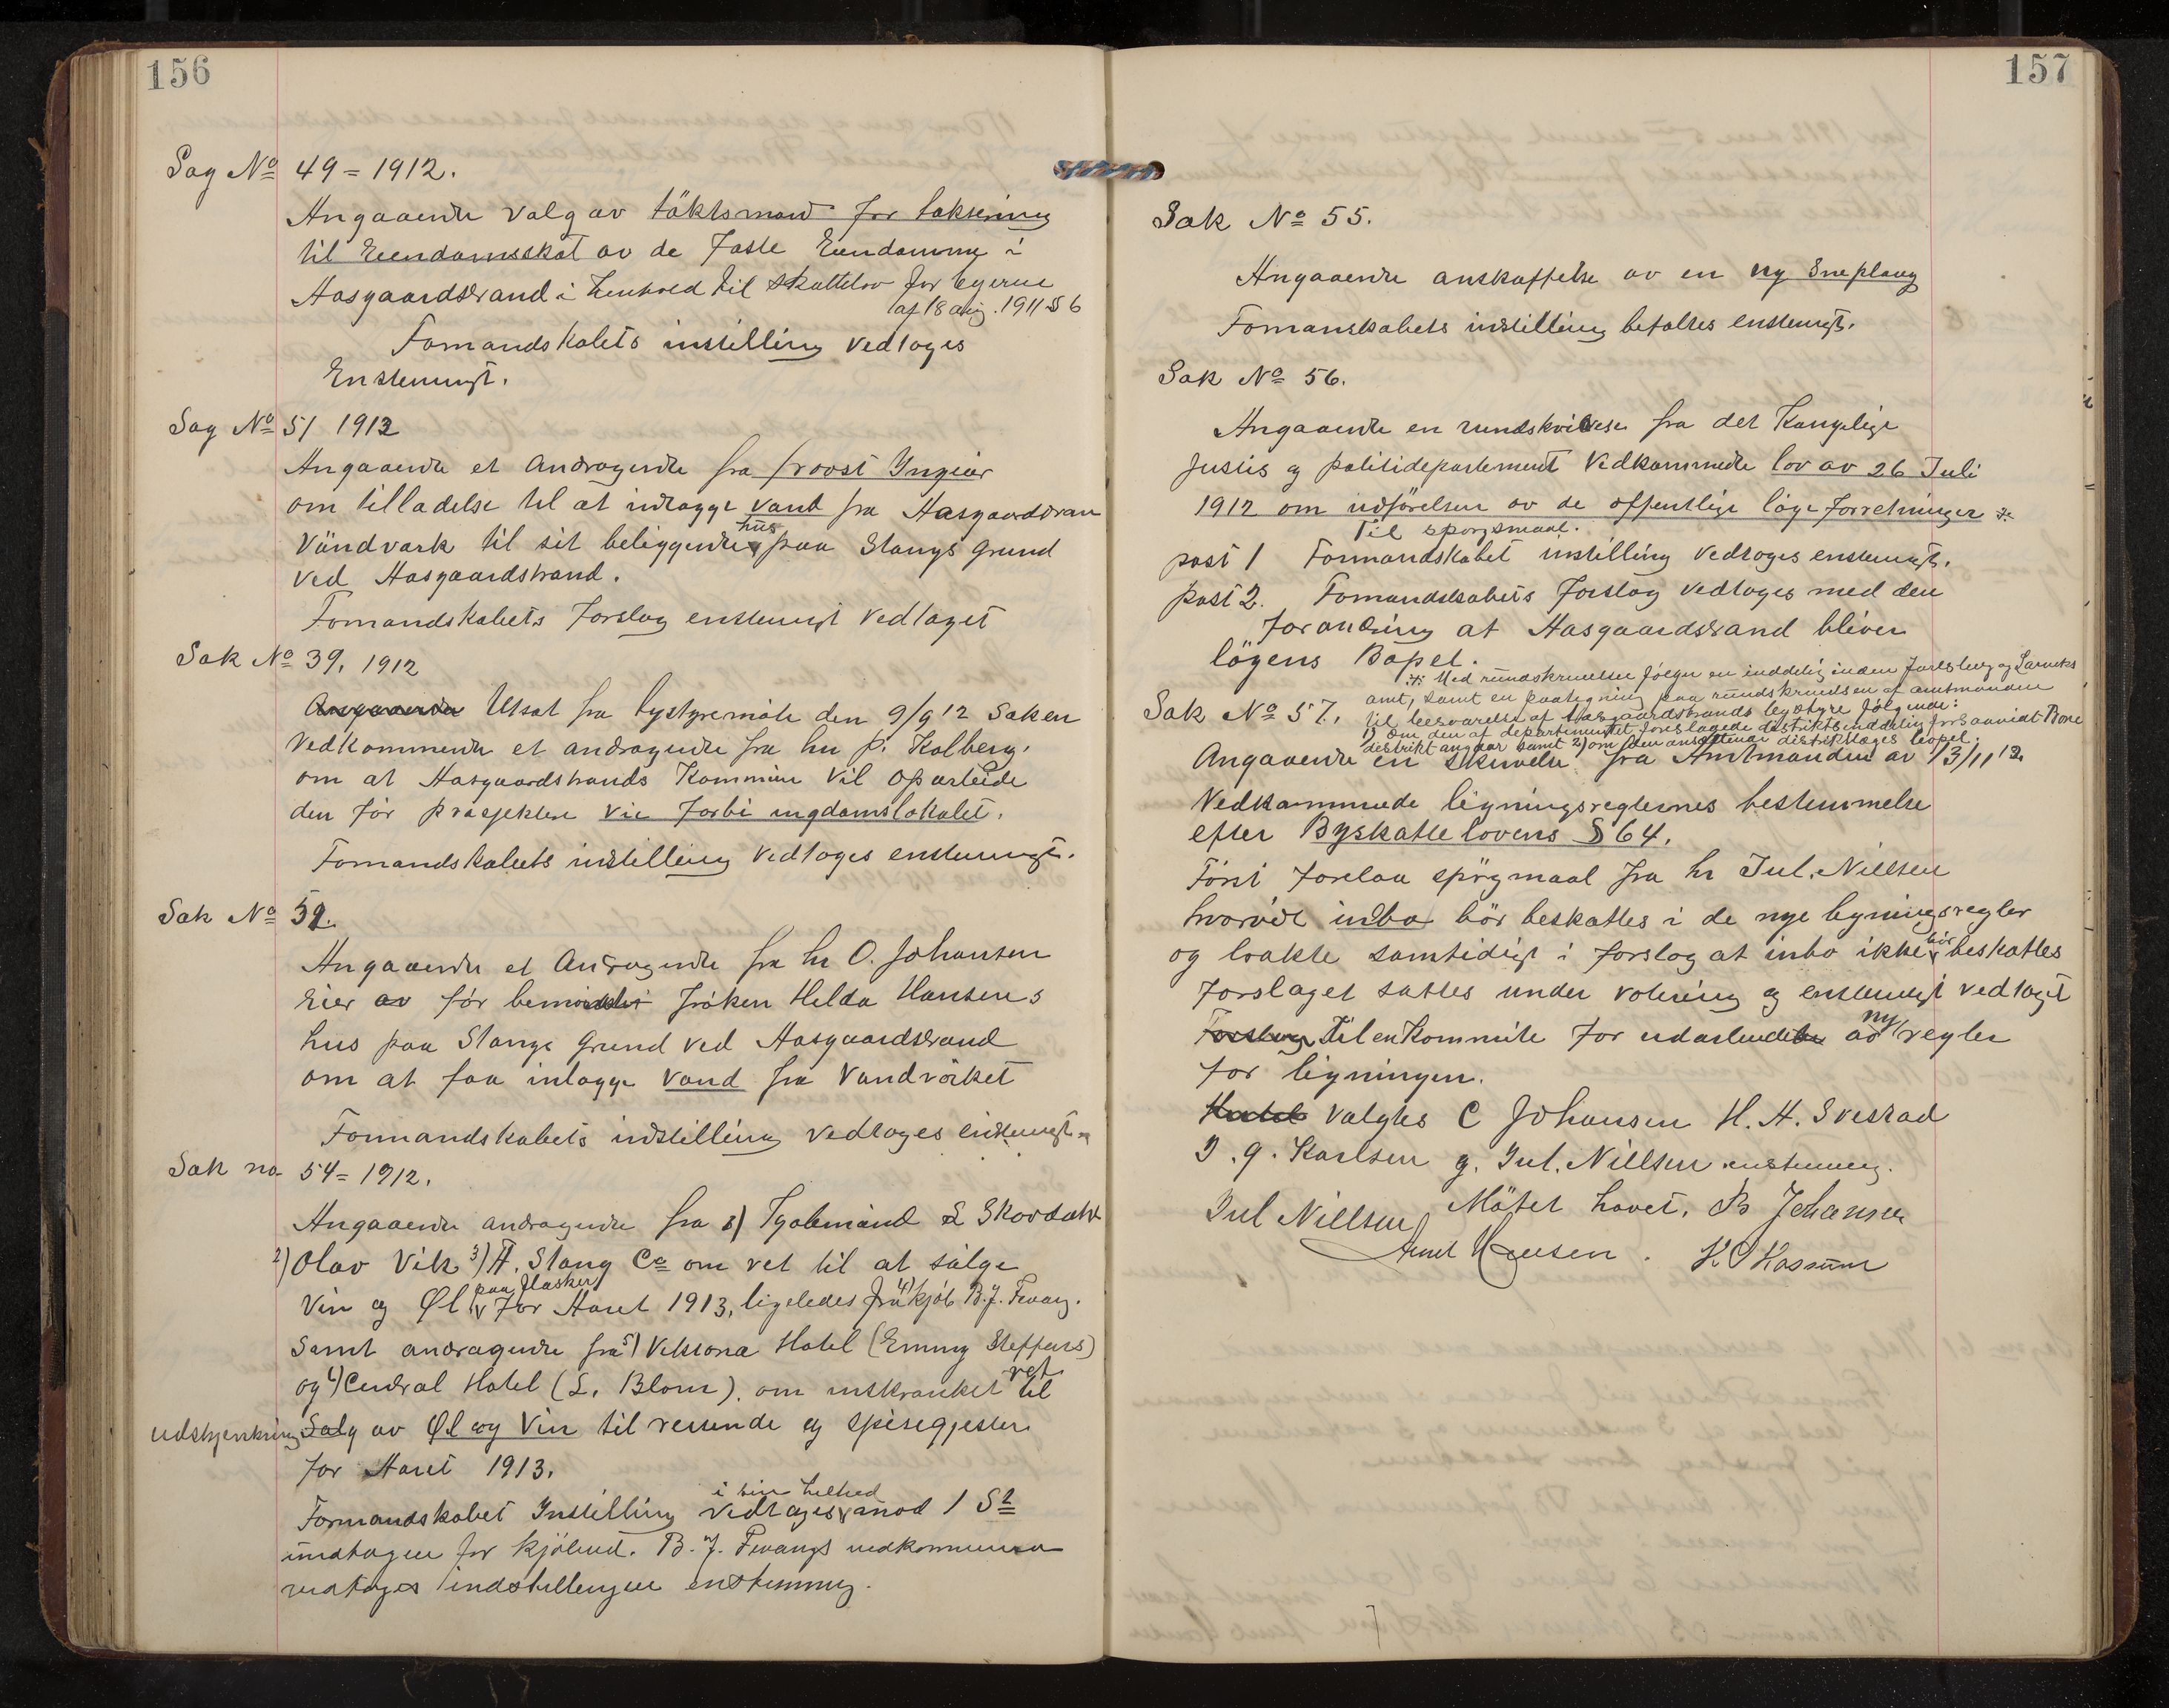 156
Sag No 49 = 1912.
Angaaende valg av täktsmænd for taksering
til Eiendomsskat av de Faste Eiendomme i
Aasgaardstrand i henhold til Skattelov for byerne
af 18 aug. 1911 § 6
Formandskabets instilling vedtoges
Enstemigt.
Sag No 51 1912
Angaaende et Andragende fra frøost Ingier
om tilladelse til at indlægge vand fra Aasgaardstran
Vandvark til sit beliggende hus paa Stangs Grund
ved Aasgaardstrand.
Formandskabets Forslag enstemigt vedtaget
Sak No 39, 1912
Angaaende Utsat fra bystyremöte den 9/9 12 Saken
vedkommende et andragende fra hr p. Kolberg,
om at Aasgaardstrands Kommune vil oparbeide
den för prosjekterte vei forbi ungdomslokalet.
Formandskabets instilling vedtoges enstemigt.
Sak No 52.
Angaaende et Andragende fra hr O. Johansen
Eier av för fröken Helda Hansens
hus paa Stangs Grund ved Aasgaardstrand
om at faa inlagge vand fra Vandvärket
Formandskabets indstilling vedtoges enstemigt
Sak no 54 = 1912.
Angaaende andragende fra 1) L Skovdahl
2) Olav Vik 3) H. Stang Co om ret til at sälge
Vin og Øl paa flasker for Aaret 1913, ligeledes fra 4) kjöb B.J. Fevang.
Samt andragende fra 5) Viktoria Hotel (Emmy Steffens)
og 6) Central Hotel (L. Blom). om inskrænket ret til
udskjænkning Salg av Øl og Vin til reisende og spisegjester
for Aaret 1913.
Formandskabet Instilling vedtoges i sin helhed mod 1 St
undtagen for kjöbmd. B.J. Fevangs vedkommende
vedtoges indstillingen enstemmig.
157
Sak No 55.
Angaaende anskaffelse av en ny Sneploug
Formanskabets instilling befaltes enstemigt.
Sak No 56.
Angaaende en rundskrivelse fra det Kongelige
Justis og politidepartement Vedkommende lov av 26 Juli
1912 om udförelsen av de offentlige läge forretninger
Til spørgsmaal.
post 1 Formandskabet instilling vedtoges enstemigt.
post 2. Formandskabets Forslag vedtoges med den
forandring at Aasgaardstrand bliver
lägens Bopel.
Med rundskrivelsen følger en inddeling inden Jarlsberg og Larviks
amt, samt en paategning paa rundskrivelsen af amtmanden
til besvarelse af Aasgaardstrands bystyre følgende:
1) Om den af departementet foreslagede distriktsinddeling forsaavidt Borre
distrikt angaar samt 2) om den ansættende distriktlæges bopel.
Sak No 57.
Angaaende en skrivelse fra Amtmanden av 13/11 12.
Vedkommende ligningsreglernes bestemmelse
efter Byskatte lovens § 64.
Först forelaa spörgmaal fra hr Jul. Nielsen
hvorvidt indbo bör beskattes i de nye ligningsregler
og bragte samtidigt i forslag at inbo ikke bör beskattes
Forslaget sattes under votering og enstemigt vedtaget
Forslag Til en Kommite for udarbeidelse av ny regler
for ligningen.
valgtes C Johansen H. A. Svestad
J. G. Karlsen og Jul. Nielsen enstemmig.
Mötet hævet. B Johansen
Jul Nielsen
Hansen. K